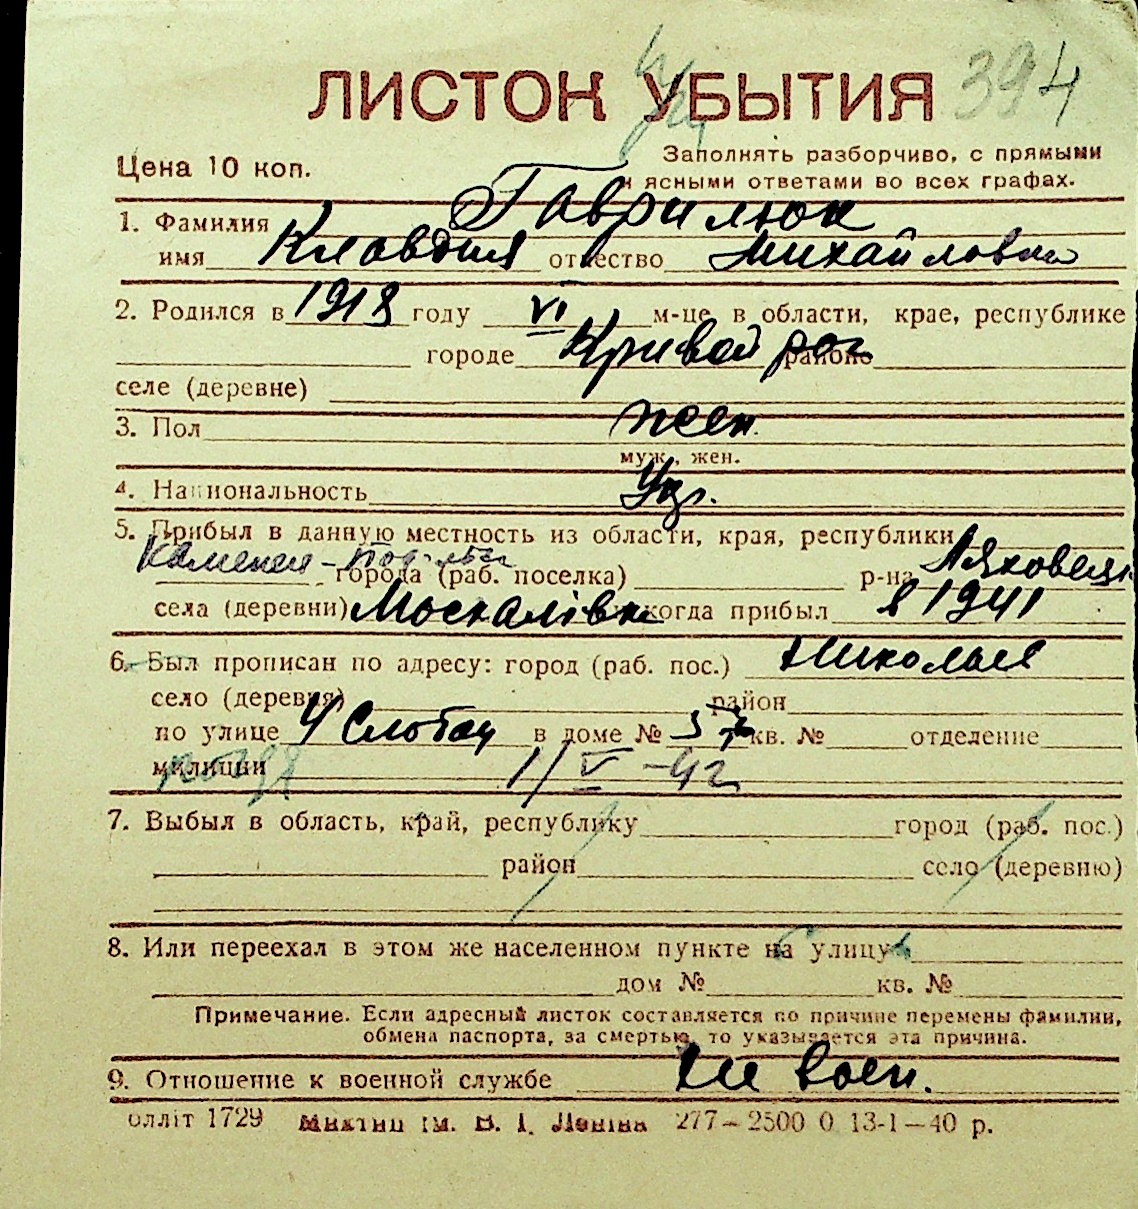 ЛИСТОК УБЫТИЯ 394
Цена 10 коп.
Заполнять разборчиво, с прямыми
и ясными ответами во всех графах.
1. Фамилия Гаврилюк
имя Клавдия отчество Михайловна
2. Родился в 1918 году VI м-це в области, крае, республике
городе Кривой рог районе
селе (деревне)
3. Пол жен.
муж., жен.
4. Национальность
5. Прибыл в данную местность из области, края, республики
Каменец- города (раб. поселка) р-на Ляховецк
села (деревни) Москалівка когда прибыл в 1941
6. Был прописан по адресу: город (раб. пос.) Николаев
село (деревня) район
по улице Слобод в доме № 57 кв. № отделение
милиции 1/V-42
7. Выбыл в область, край, республику город (раб. пос.)
район село (деревню)
8. Или переехал в этом же населенном пункте на улицу
дом № кв. №
Примечание. Если адресный листок составляется по причине перемены фамилии,
обмена паспорта, за смертью, то указывается эта причина.
9. Отношение к военной службе Не воен.
олліт 1729 ім. В. І. Леніна 277—2500 0 13-1—40 р.